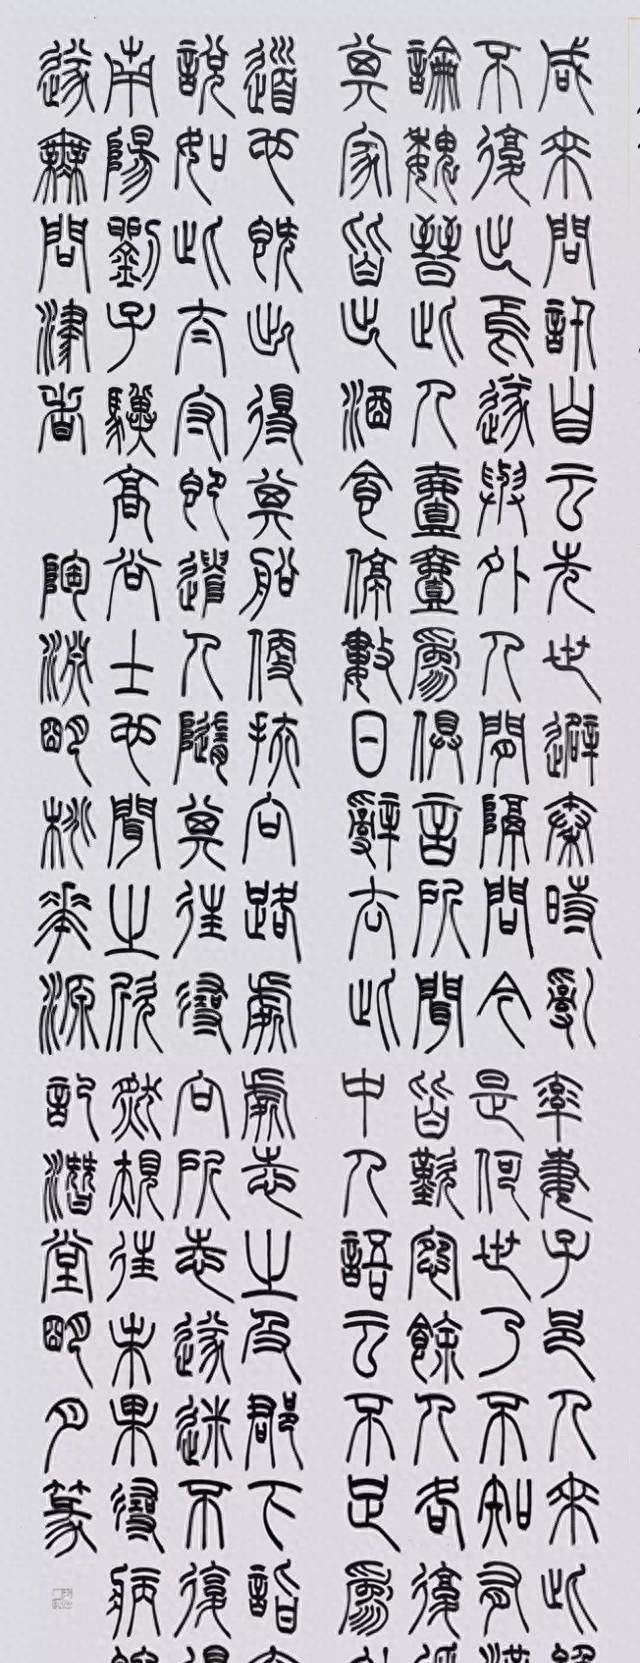 咸來問訊自云先世避秦時亂率妻子邑人來此絕
不復出焉遂與外人間隔問今是何世乃不知有漢
論魏晉此人壹壹為俱言所聞皆歎惋餘人各復延
其家皆出酒食停數日辭去此中人語云不足為外
道也既出得其船便扶向路處處志之及郡下詣太
說如此太守即遣人隨其往尋向所志遂迷不復得
南陽劉子驥高尚士也聞之欣然規往未果尋病終
遂無問津者 陶淵明桃花源記潛堂明月篆